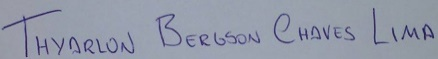 THYARLON BERGSON CHAVES LIMA